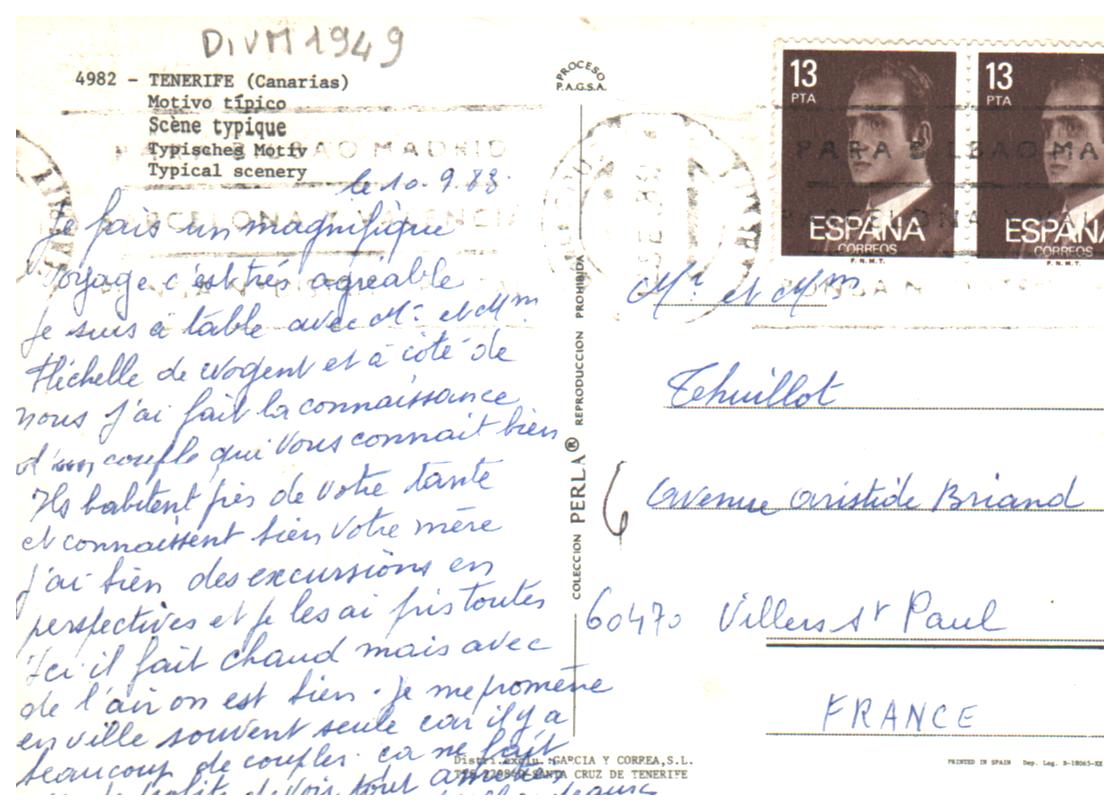 DIVM 1949
4982 - TENERIFE (Canarias)
Motivo típico
Scène typique
Typisches Motiv
Typical scenery
le 10.9.83.
Je fais un magnifique
voyage c'est très agréable
Je suis à table avec Mr et Mm
Michelle de Nogent et à côté de
nous j'ai fait la connaissance
d'un couple qui vous connait bien
Ils habitent près de votre tante
et connaissent bien votre mère
j'ai bien des excursions en
perspectives et je les ai pris toutes
Ici il fait chaud mais avec
de l'air on est bien. Je me promène
en ville souvent seule car il y a
beaucoup de couples. ça ne fait
de voir tout
PROCESO
P.A.G.S.A.
COLECCION PERLA® REPRODUCCION PROHIBIDA
13
PTA
ESPAÑA
CORREOS
F.N.M.T.
13
PTA
ESPAÑA
CORREOS
F.N.M.T.
PARA BILBAO MADRID
BARCELONA Y VALENCIA
PARA BILBAO MA
Mr et Mm
Thuillot
6 avenue Aristide Briand
60470 Villers St Paul
FRANCE
Distri.exclu.:GARCIA Y CORREA,S.L.
SANTA CRUZ DE TENERIFE
PRINTED IN SPAIN Dep. Leg. B-18065-XX